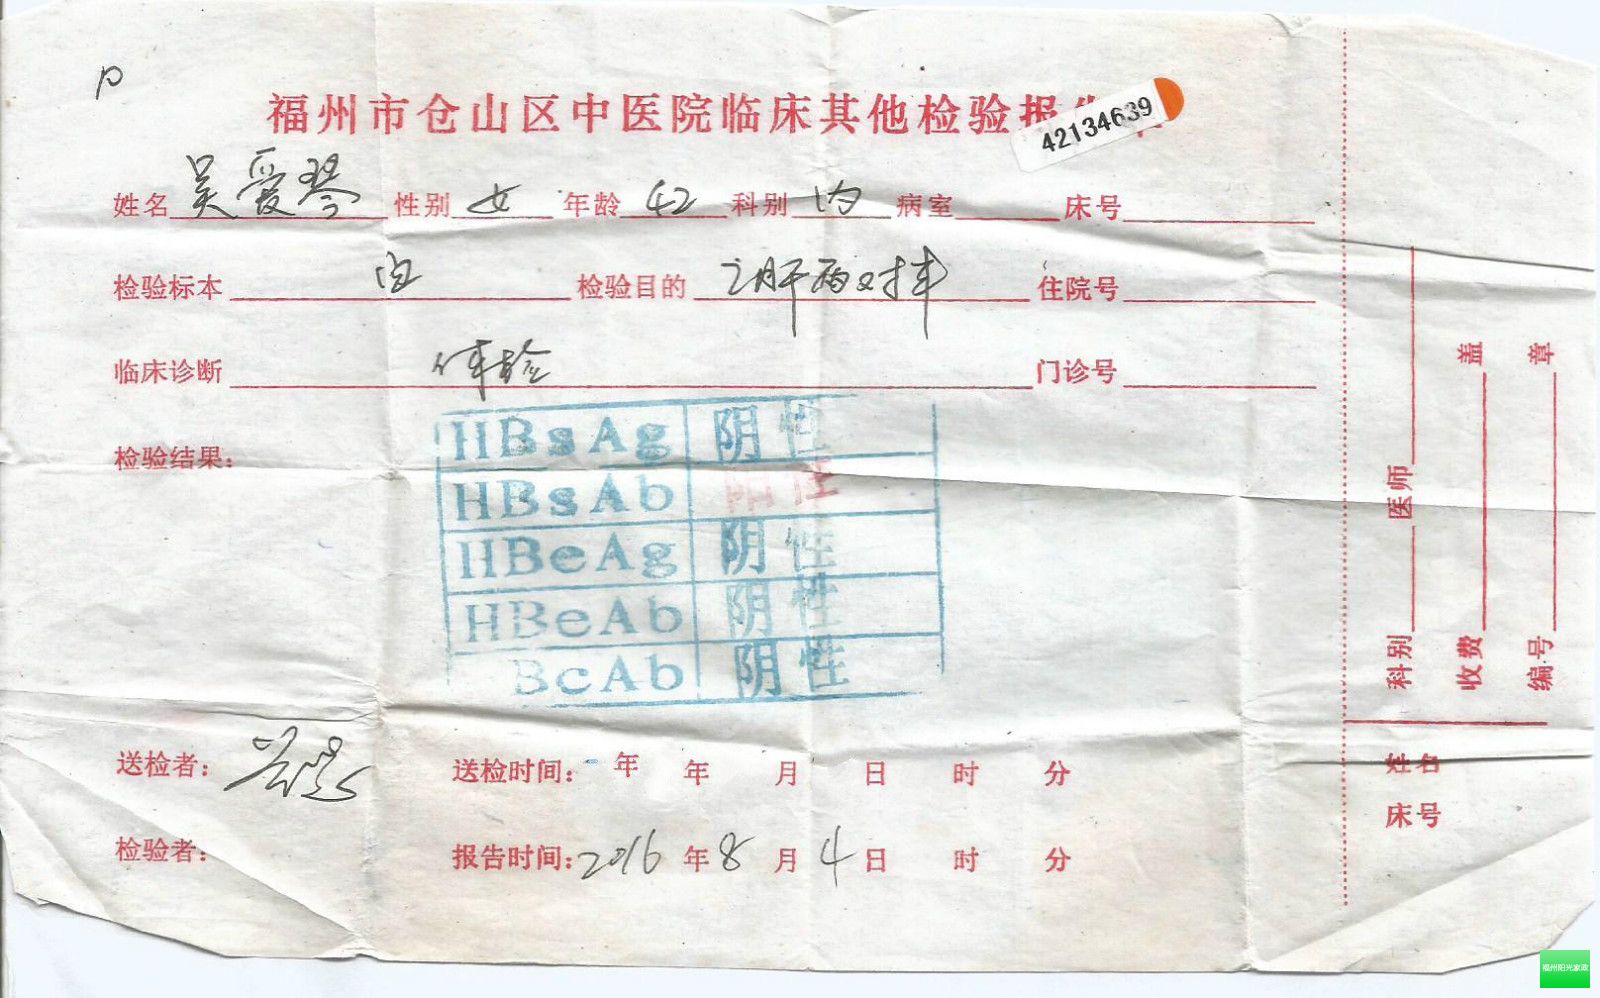 福州市仓山区中医院临床其他检验报
42134639
姓名 吴爱琴 性别 女 年龄 42 科别 内 病室 床号
检验标本 血 检验目的 乙肝两对半 住院号
临床诊断 体验 门诊号
检验结果:
HBsAg 阴性
HBsAb 阳性
HBeAg 阴性
HBeAb 阴性
BcAb 阴性
送检者: 送检时间: 年 年 月 日 时 分
检验者: 报告时间: 2016 年 8 月 4 日 时 分
科别 医师
收费 盖
编号 章
姓名
床号
福州阳光家政